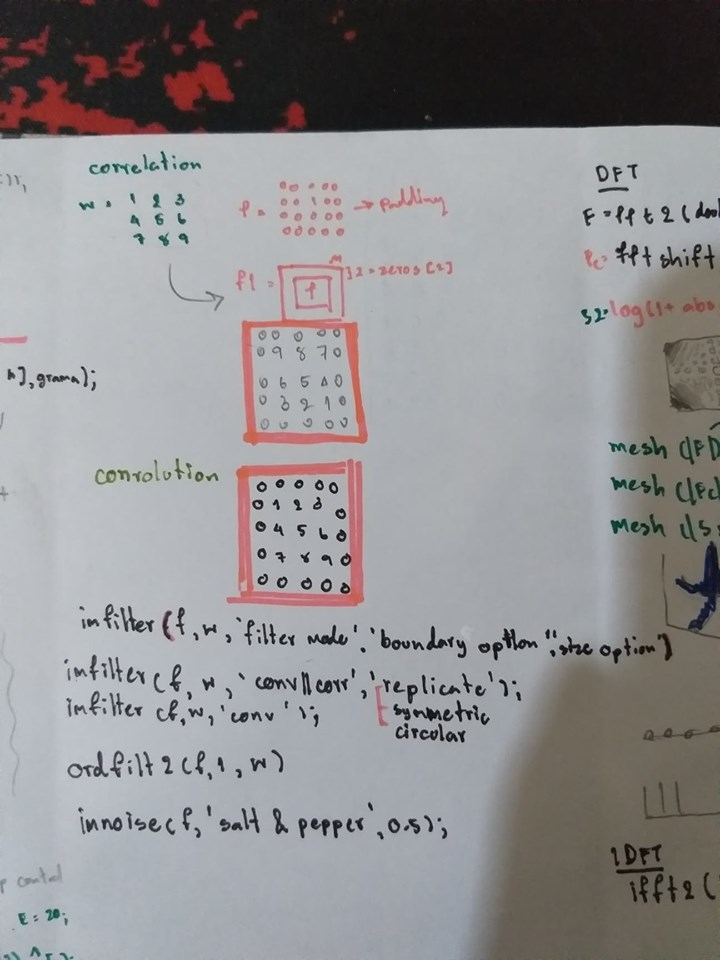 correlation
w = 1 2 3
4 5 6
7 8 9
f = 0 0 0 0 0
0 0 1 0 0
0 0 0 0 0
0 0 0 0 0
→ padding
f1 =
f
32 = zeros [2]
0 0 0 0 0
0 9 8 7 0
0 6 5 4 0
0 3 2 1 0
0 0 0 0 0
convolution
0 0 0 0 0
0 1 2 3 0
0 4 5 6 0
0 7 8 9 0
0 0 0 0 0
imfilter (f, w, 'filter mode', 'boundary option', 'size option')
imfilter (f, w, 'conv||corr', 'replicate');
imfilter (f, w, 'conv');
symmetric
circular
ordfilt2 (f, 1, w)
imnoise (f, 'salt & pepper', 0.5);
], grama);
control
E = 20;
DFT
F = fft2 (
fftshift
log(1+ abs
mesh (
mesh (
mesh (
IDFT
ifft2 (